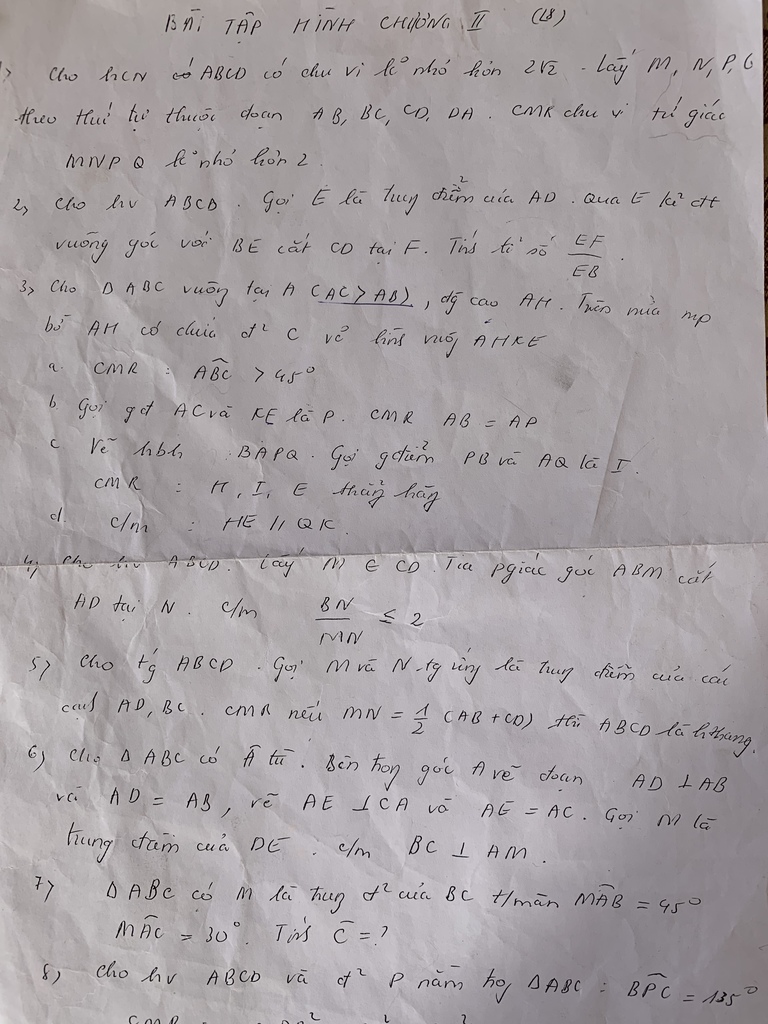 BÀI TẬP HÌNH CHƯƠNG II (L8)
1) Cho hCN có ABCD có chu vi k° nhỏ hơn 2√2 - Lấy M, N, P, Q
theo thứ tự thuộc đoạn AB, BC, CD, DA. CMR chu vi tứ giác
MNPQ k° nhỏ hơn 2.
2, Cho hv ABCD. Gọi E là trung điểm của AD. Qua E kẻ đt
vuông góc với BE cắt CD tại F. Tính tỉ số EF/EB.
3, Cho Δ ABC vuông tại A (AC > AB), đg cao AH. Trên nửa mp
bờ AH có chứa đ² C vẽ hình vuông AHKE
a. CMR : ABC > 45°
b. Gọi gđ AC và KE là P. CMR AB = AP
c Vẽ hbh BAPQ. Gọi gđiểm PB và AQ là I.
CMR : H, I, E thẳng hàng
d. c/m : HE // QK.
4, Cho hv ABCD. Lấy M ∈ CD. Tia pgiác góc ABM cắt
AD tại N. c/m BN/MN ≤ 2
5, Cho tg ABCD. Gọi M và N tg ứng là trung điểm của các
cạnh AD, BC. CMR nếu MN = 1/2 (AB + CD) thì ABCD là hthang.
6, Cho Δ ABC có Â tù. Bên trong góc A vẽ đoạn AD ⊥ AB
và AD = AB, vẽ AE ⊥ CA và AE = AC. Gọi M là
trung điểm của DE. c/m BC ⊥ AM.
7, Δ ABC có M là trung đ² của BC t/mãn MAB = 45°
MAC = 30°. Tính C = ?
8, Cho hv ABCD và đ² P nằm trong ΔABC : BPC = 135°
CMR